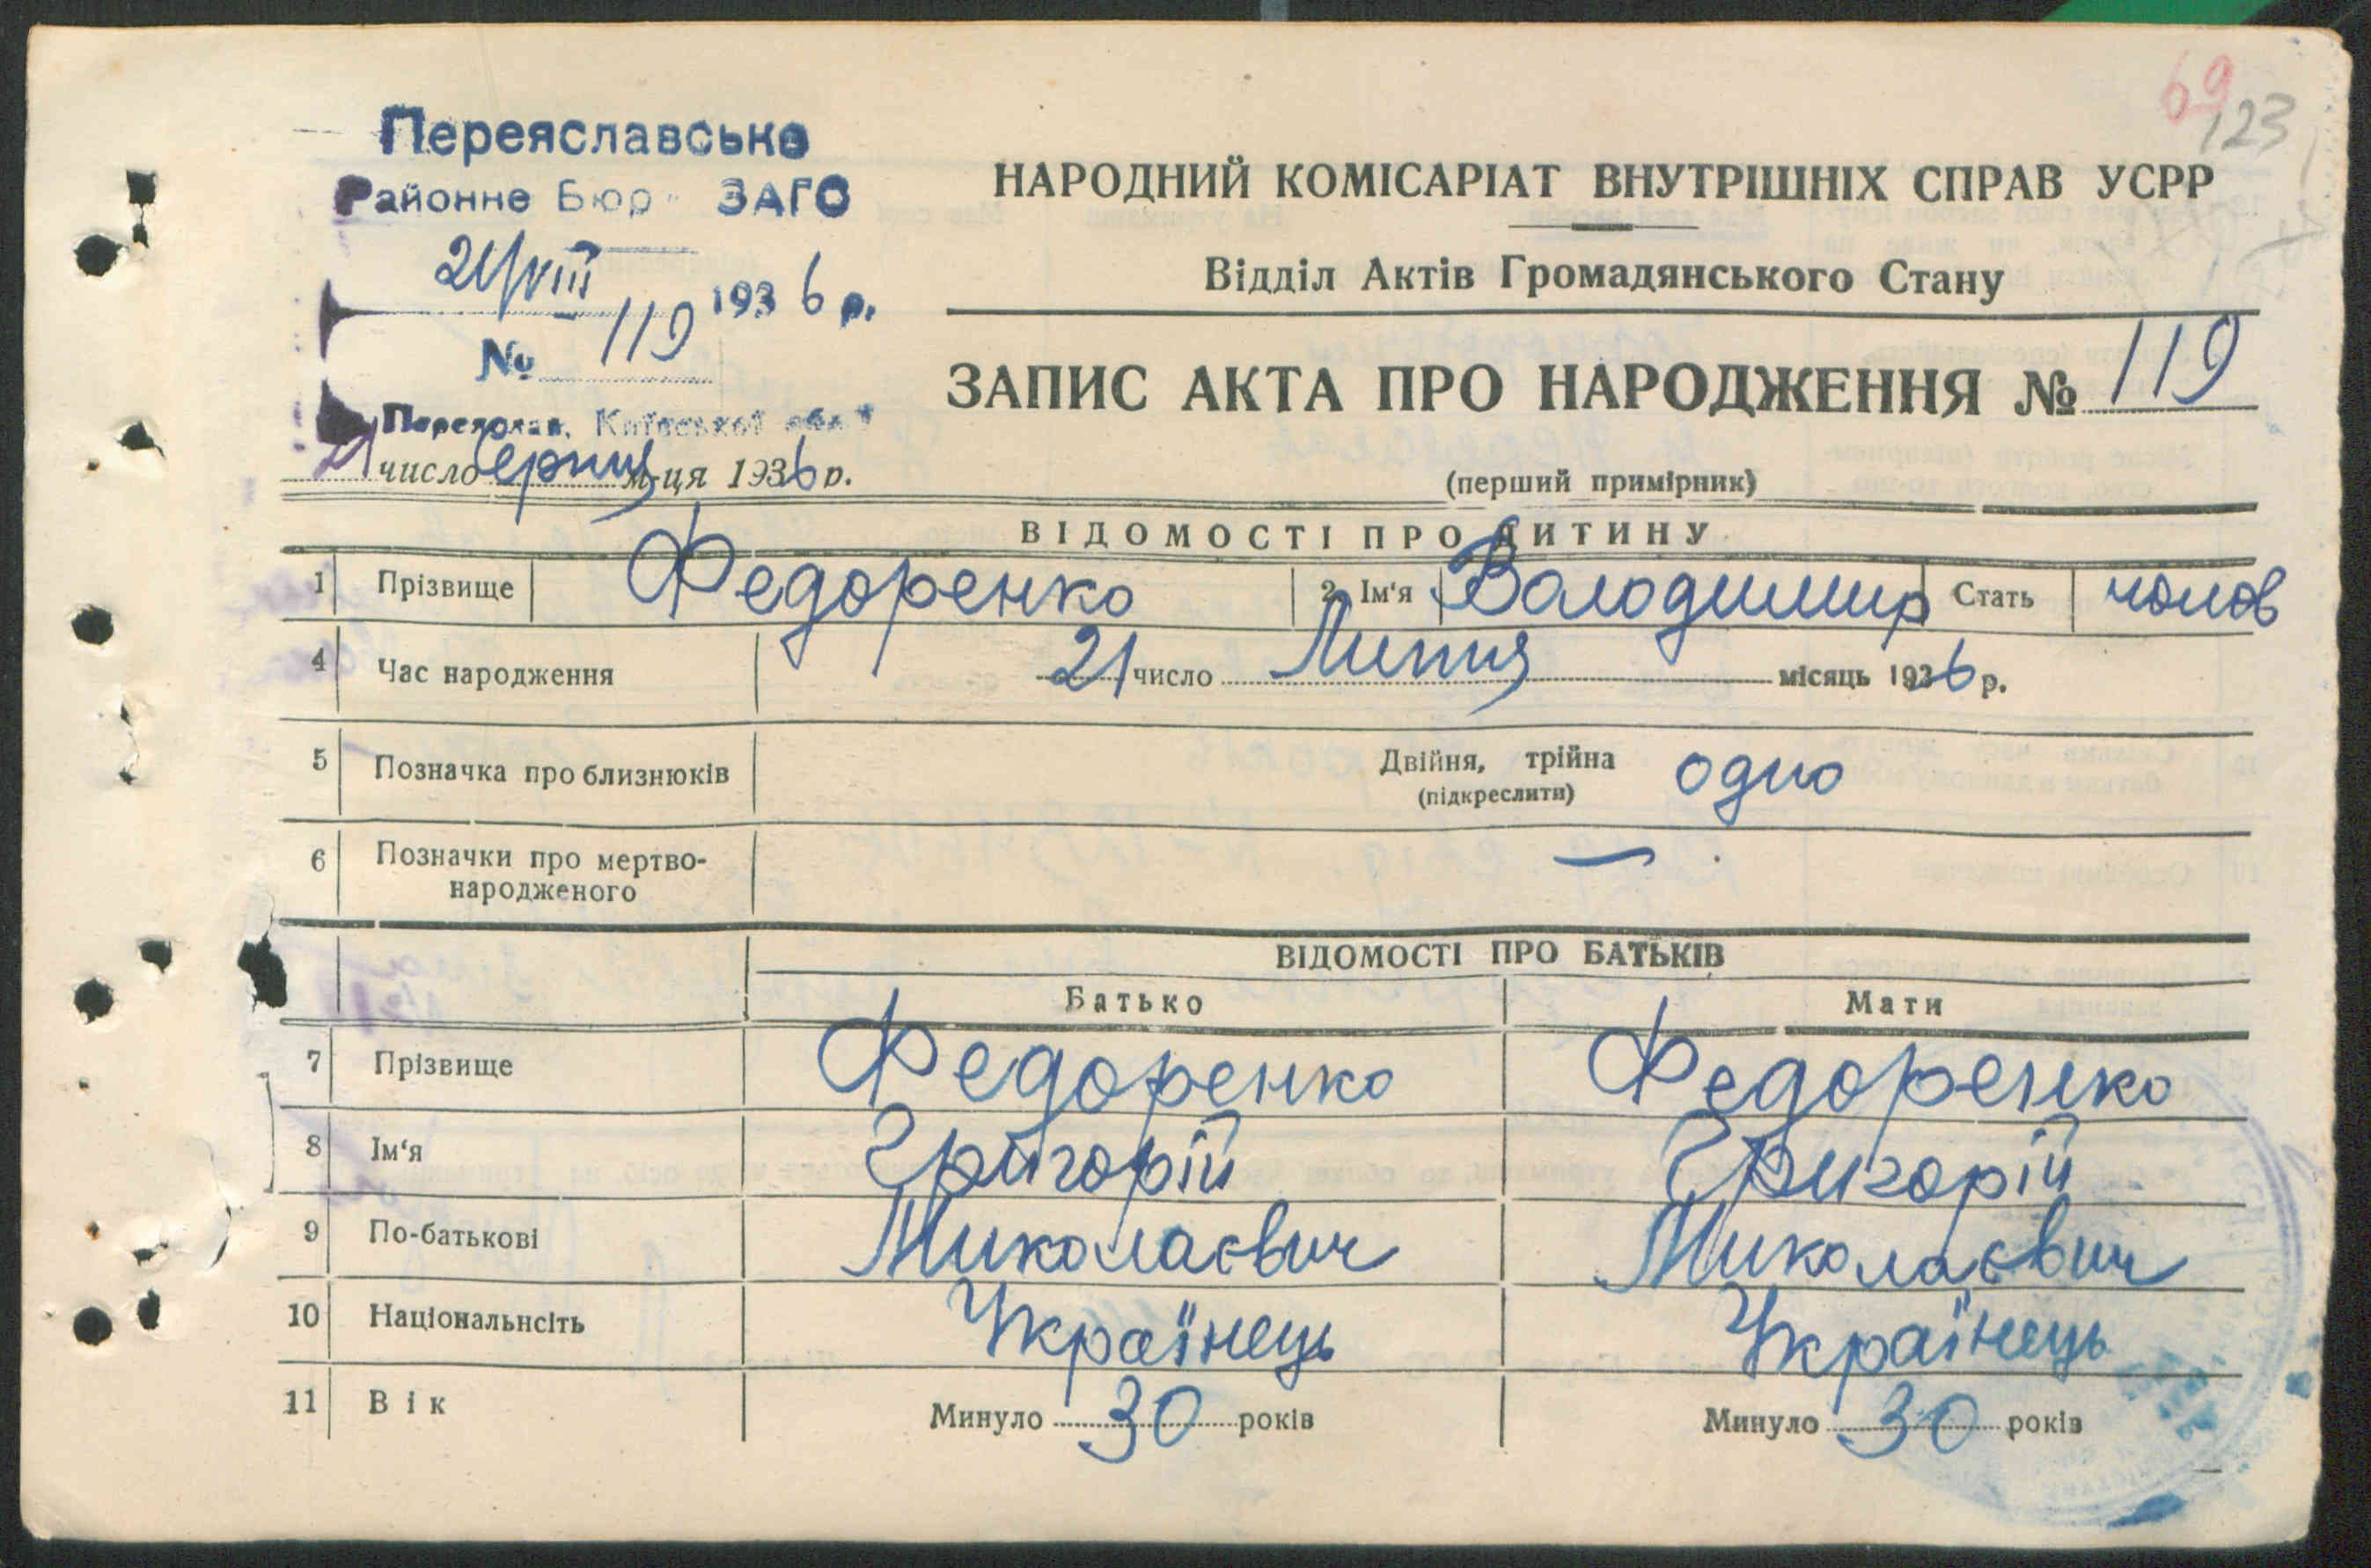 69
123
Переяславське
Районне Бюро ЗАГС
21/VIII 1936 р.
№ 119
Переяслав, Київської обл.
21 число Серпня м-ця 1936 р.
НАРОДНИЙ КОМІСАРІАТ ВНУТРІШНІХ СПРАВ УСРР
Відділ Актів Громадянського Стану
ЗАПИС АКТА ПРО НАРОДЖЕННЯ № 119
(перший примірник)
ВІДОМОСТІ ПРО ДИТИНУ
1 Прізвище Федоренко 2 Ім'я Володимир Стать чолов
4 Час народження 21 число Липня місяць 1936 р.
5 Позначка про близнюків Двійня, трійна одно
(підкреслити)
6 Позначки про мертво-
народженого —
ВІДОМОСТІ ПРО БАТЬКІВ
Батько Мати
7 Прізвище Федоренко Федоренко
8 Ім'я Григорій Григорій
9 По-батькові Миколаєвич Миколаєвич
10 Національнсіть Українець Українець
11 Вік Минуло 30 років Минуло 30 років